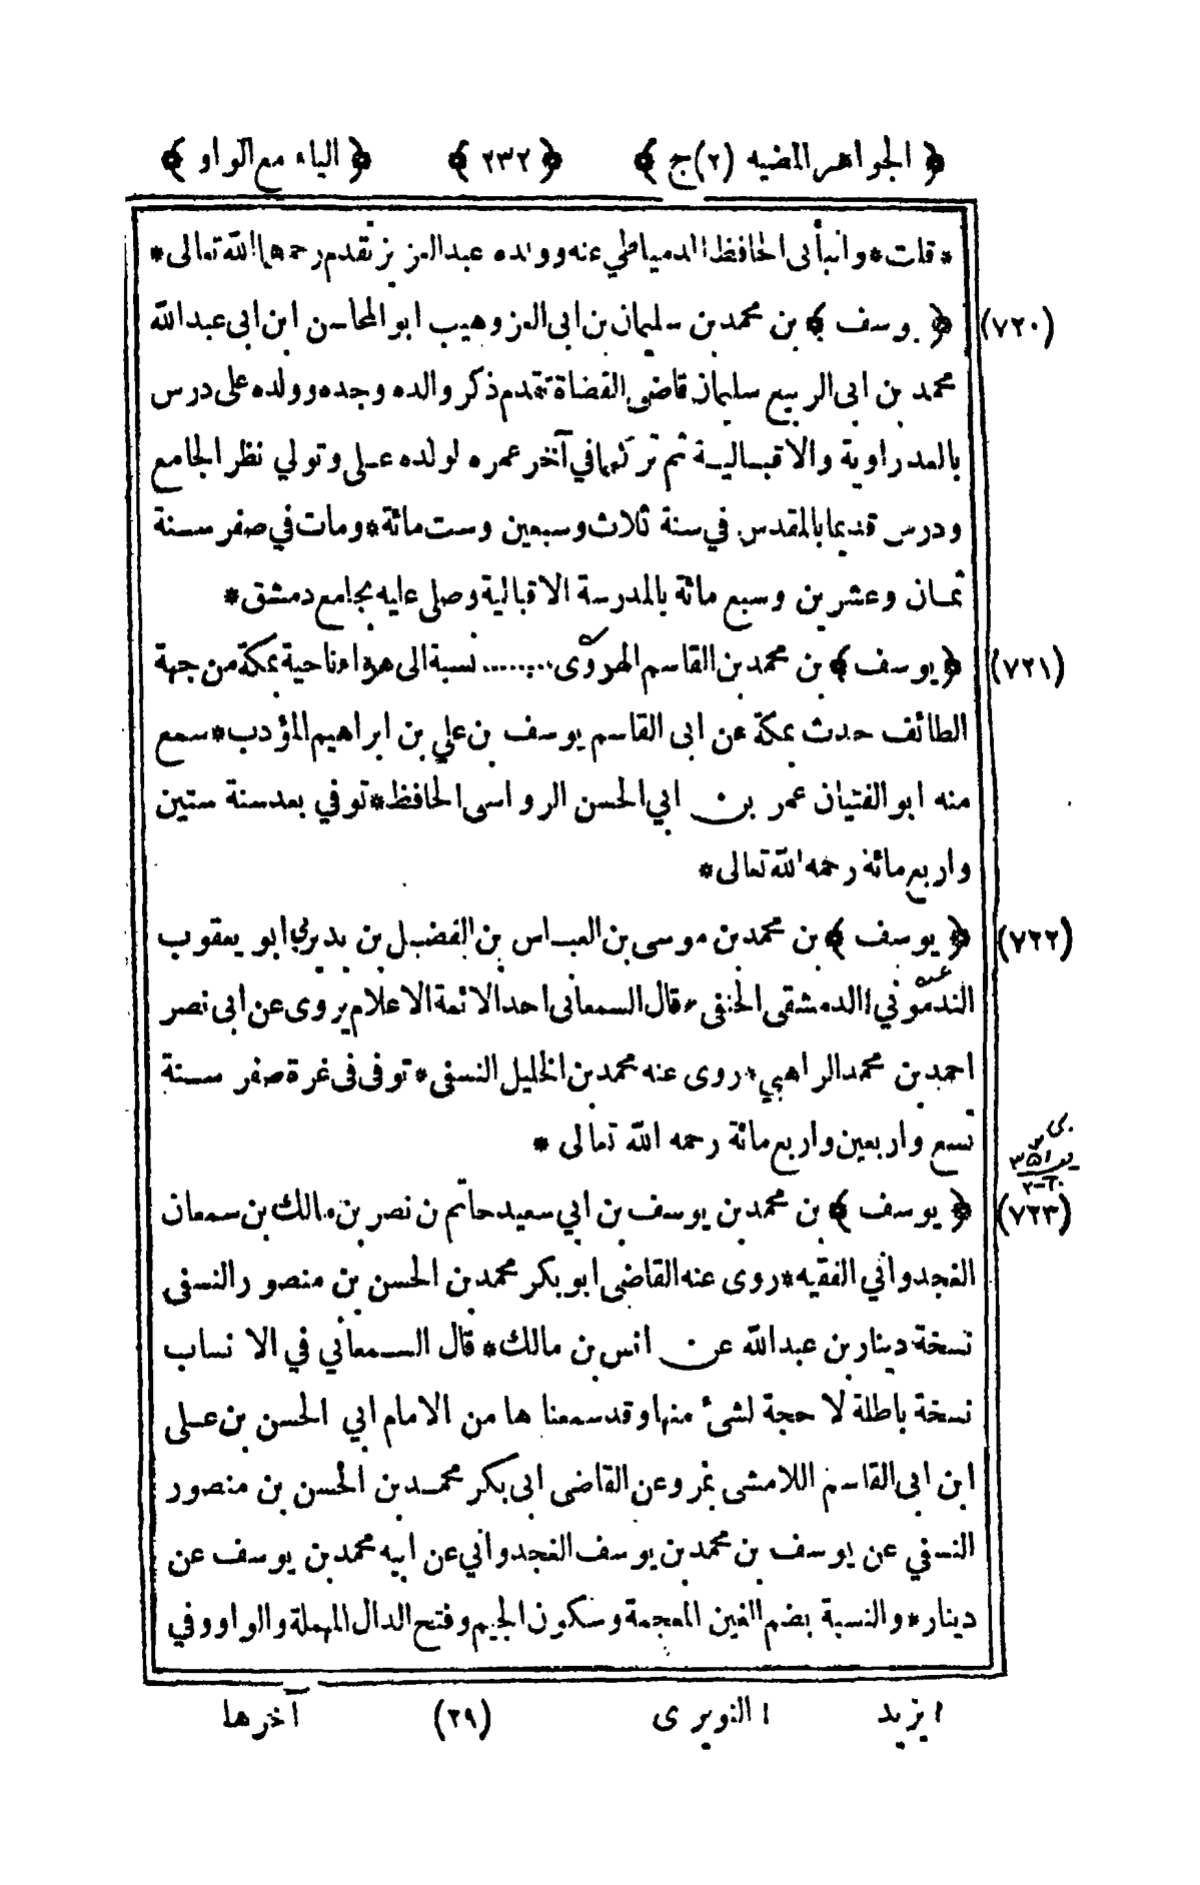 ﴿ الجواهر المضيه (٢) ج ﴾ ﴿ ٢٣٢ ﴾ ﴿ الياء مع الواو ﴾
* قلت * وانبأنى الحافظ الدمياطي عنه ووالده عبدالعزيز تقدم رحمهما الله تعالى *
(٧٢٠) ﴿ يوسف ﴾ بن محمد بن سليمان بن ابى العز وهيب ابو المحاسن ابن ابى عبد الله
محمد بن ابى الربيع سليمان قاضى القضاة تقدم ذكر والده وجده وولده على درس
بالعدراوية والاقبالية ثم تركهما في آخر عمره لولده على وتولي نظر الجامع
ودرس قديما بالمقدس في سنة ثلاث وسبعين وست مائة * ومات في صفر سنة
ثمان وعشرين وسبع مائة بالمدرسة الاقبالية وصلى عليه بجامع دمشق *
(٧٢١) ﴿ يوسف ﴾ بن محمد بن القاسم الهروى ........ نسبة الى هراة ناحية بمكة من جهة
الطائف حدث بمكة عن ابى القاسم يوسف بن علي بن ابراهيم المؤدب * سمع
منه ابو الفتيان عمر بن ابي الحسن الرواسى الحافظ * توفي بعد سنة ستين
واربع مائة رحمه الله تعالى *
(٧٢٢) ﴿ يوسف ﴾ بن محمد بن موسى بن العباس بن الفضيل بن يديربي ابو يعقوب
الندموني الدمشقى الحنفى * قال السمعانى احد الائمة الاعلام يروى عن ابى نصر
احمد بن محمد الراهبي * روى عنه محمد بن الخليل النسفى * توفى فى غرة صفر سنة
تسع واربعين واربع مائة رحمه الله تعالى *
(٧٢٣) ﴿ يوسف ﴾ بن محمد بن يوسف بن ابي سعيد حاتم بن نصر بن مالك بن سمعان
الغجدواني الفقيه * روى عنه القاضى ابو بكر محمد بن الحسن بن منصور النسفى
نسخة دينار بن عبدالله عن انس بن مالك * قال السمعاني في الانساب
نسخة باطلة لا حجة لشئ منها وقد سمعناها من الامام ابي الحسن بن على
ابن ابى القاسم اللامشى بمرو عن القاضى ابى بكر محمد بن الحسن بن منصور
النسفي عن يوسف بن محمد بن يوسف الغجدواني عن ابيه محمد بن يوسف عن
دينار * والنسبة بضم الغين المعجمة وسكون الجيم وفتح الدال المهملة والواو وفي
١ يزيد ١ النويرى (٢٩) آخرها